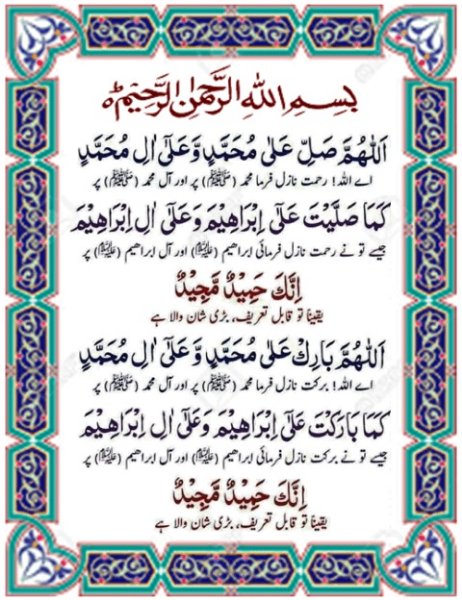 بِسْمِ اللهِ الرَّحْمٰنِ الرَّحِيْمِ
اَللّٰهُمَّ صَلِّ عَلٰى مُحَمَّدٍ وَّعَلٰٓى اٰلِ مُحَمَّدٍ
اے اللہ! رحمت نازل فرما محمد (ﷺ) پر اور آل محمد (ﷺ) پر
كَمَا صَلَّيْتَ عَلٰٓى اِبْرَاهِيْمَ وَعَلٰٓى اٰلِ اِبْرَاهِيْمَ
جیسے تو نے رحمت نازل فرمائی ابراھیم (علیہ السلام) پر اور آل ابراھیم (علیہ السلام) پر
اِنَّكَ حَمِيْدٌ مَّجِيْدٌ
یقیناً تو قابل تعریف، بڑی شان والا ہے
اَللّٰهُمَّ بَارِكْ عَلٰى مُحَمَّدٍ وَّعَلٰٓى اٰلِ مُحَمَّدٍ
اے اللہ! برکت نازل فرما محمد (ﷺ) پر اور آل محمد (ﷺ) پر
كَمَا بَارَكْتَ عَلٰٓى اِبْرَاهِيْمَ وَعَلٰٓى اٰلِ اِبْرَاهِيْمَ
جیسے تو نے برکت نازل فرمائی ابراھیم (علیہ السلام) پر اور آل ابراھیم (علیہ السلام) پر
اِنَّكَ حَمِيْدٌ مَّجِيْدٌ
یقیناً تو قابل تعریف، بڑی شان والا ہے